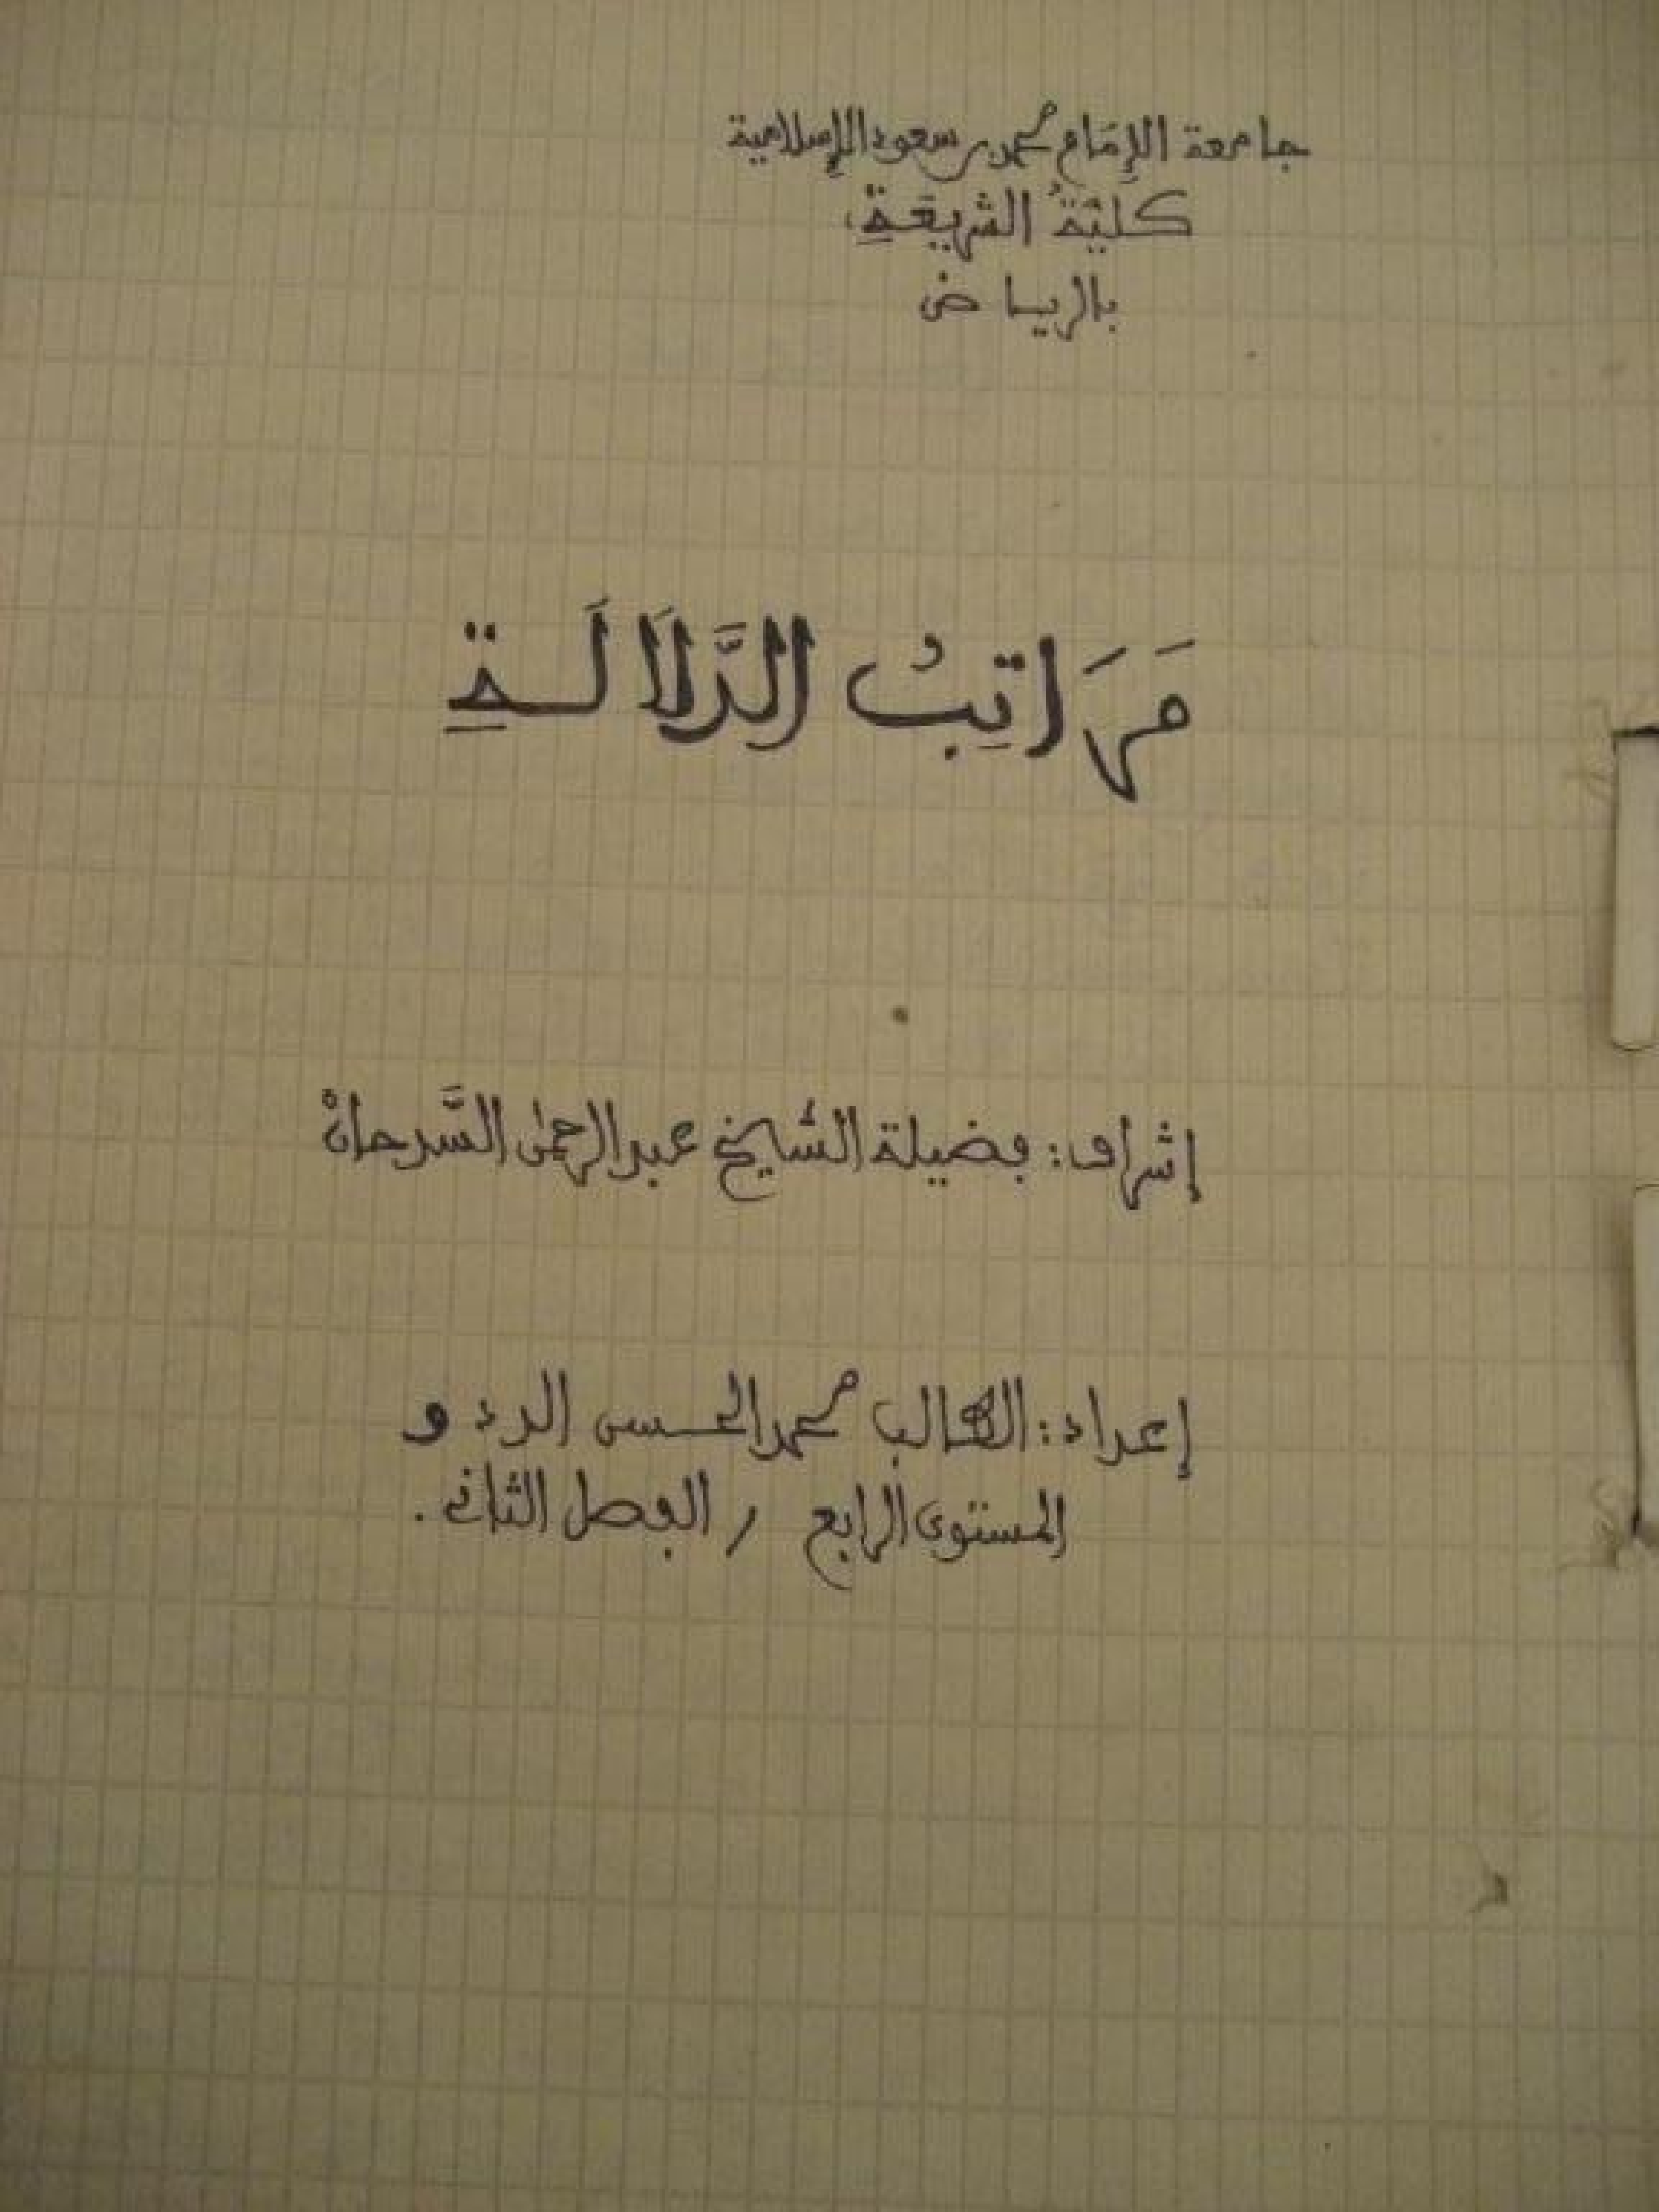 جامعة الإمام محمد بن سعود الإسلامية
كليّةُ الشريعَةِ
بالرياض
مَرَاتِبُ الدَّلَالَةِ
إشراف: فضيلة الشيخ عبد الرحمٰن السَّدحانْ
إعداد: الطالب محمد الحسن الددو
المستوى الرابع / الفصل الثاني.